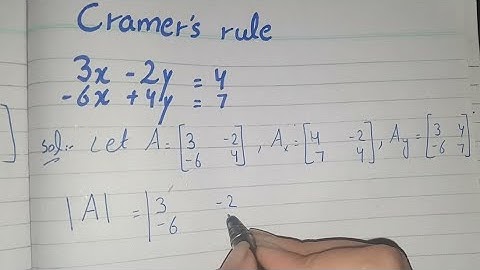 Cramer's rule
3x - 2y = 4
-6x + 4y = 7
Sol:- Let A = [3 -2 -6 4], Ax = [4 -2 7 4], Ay = [3 4 -6 7]
|A| = |3 -2 -6